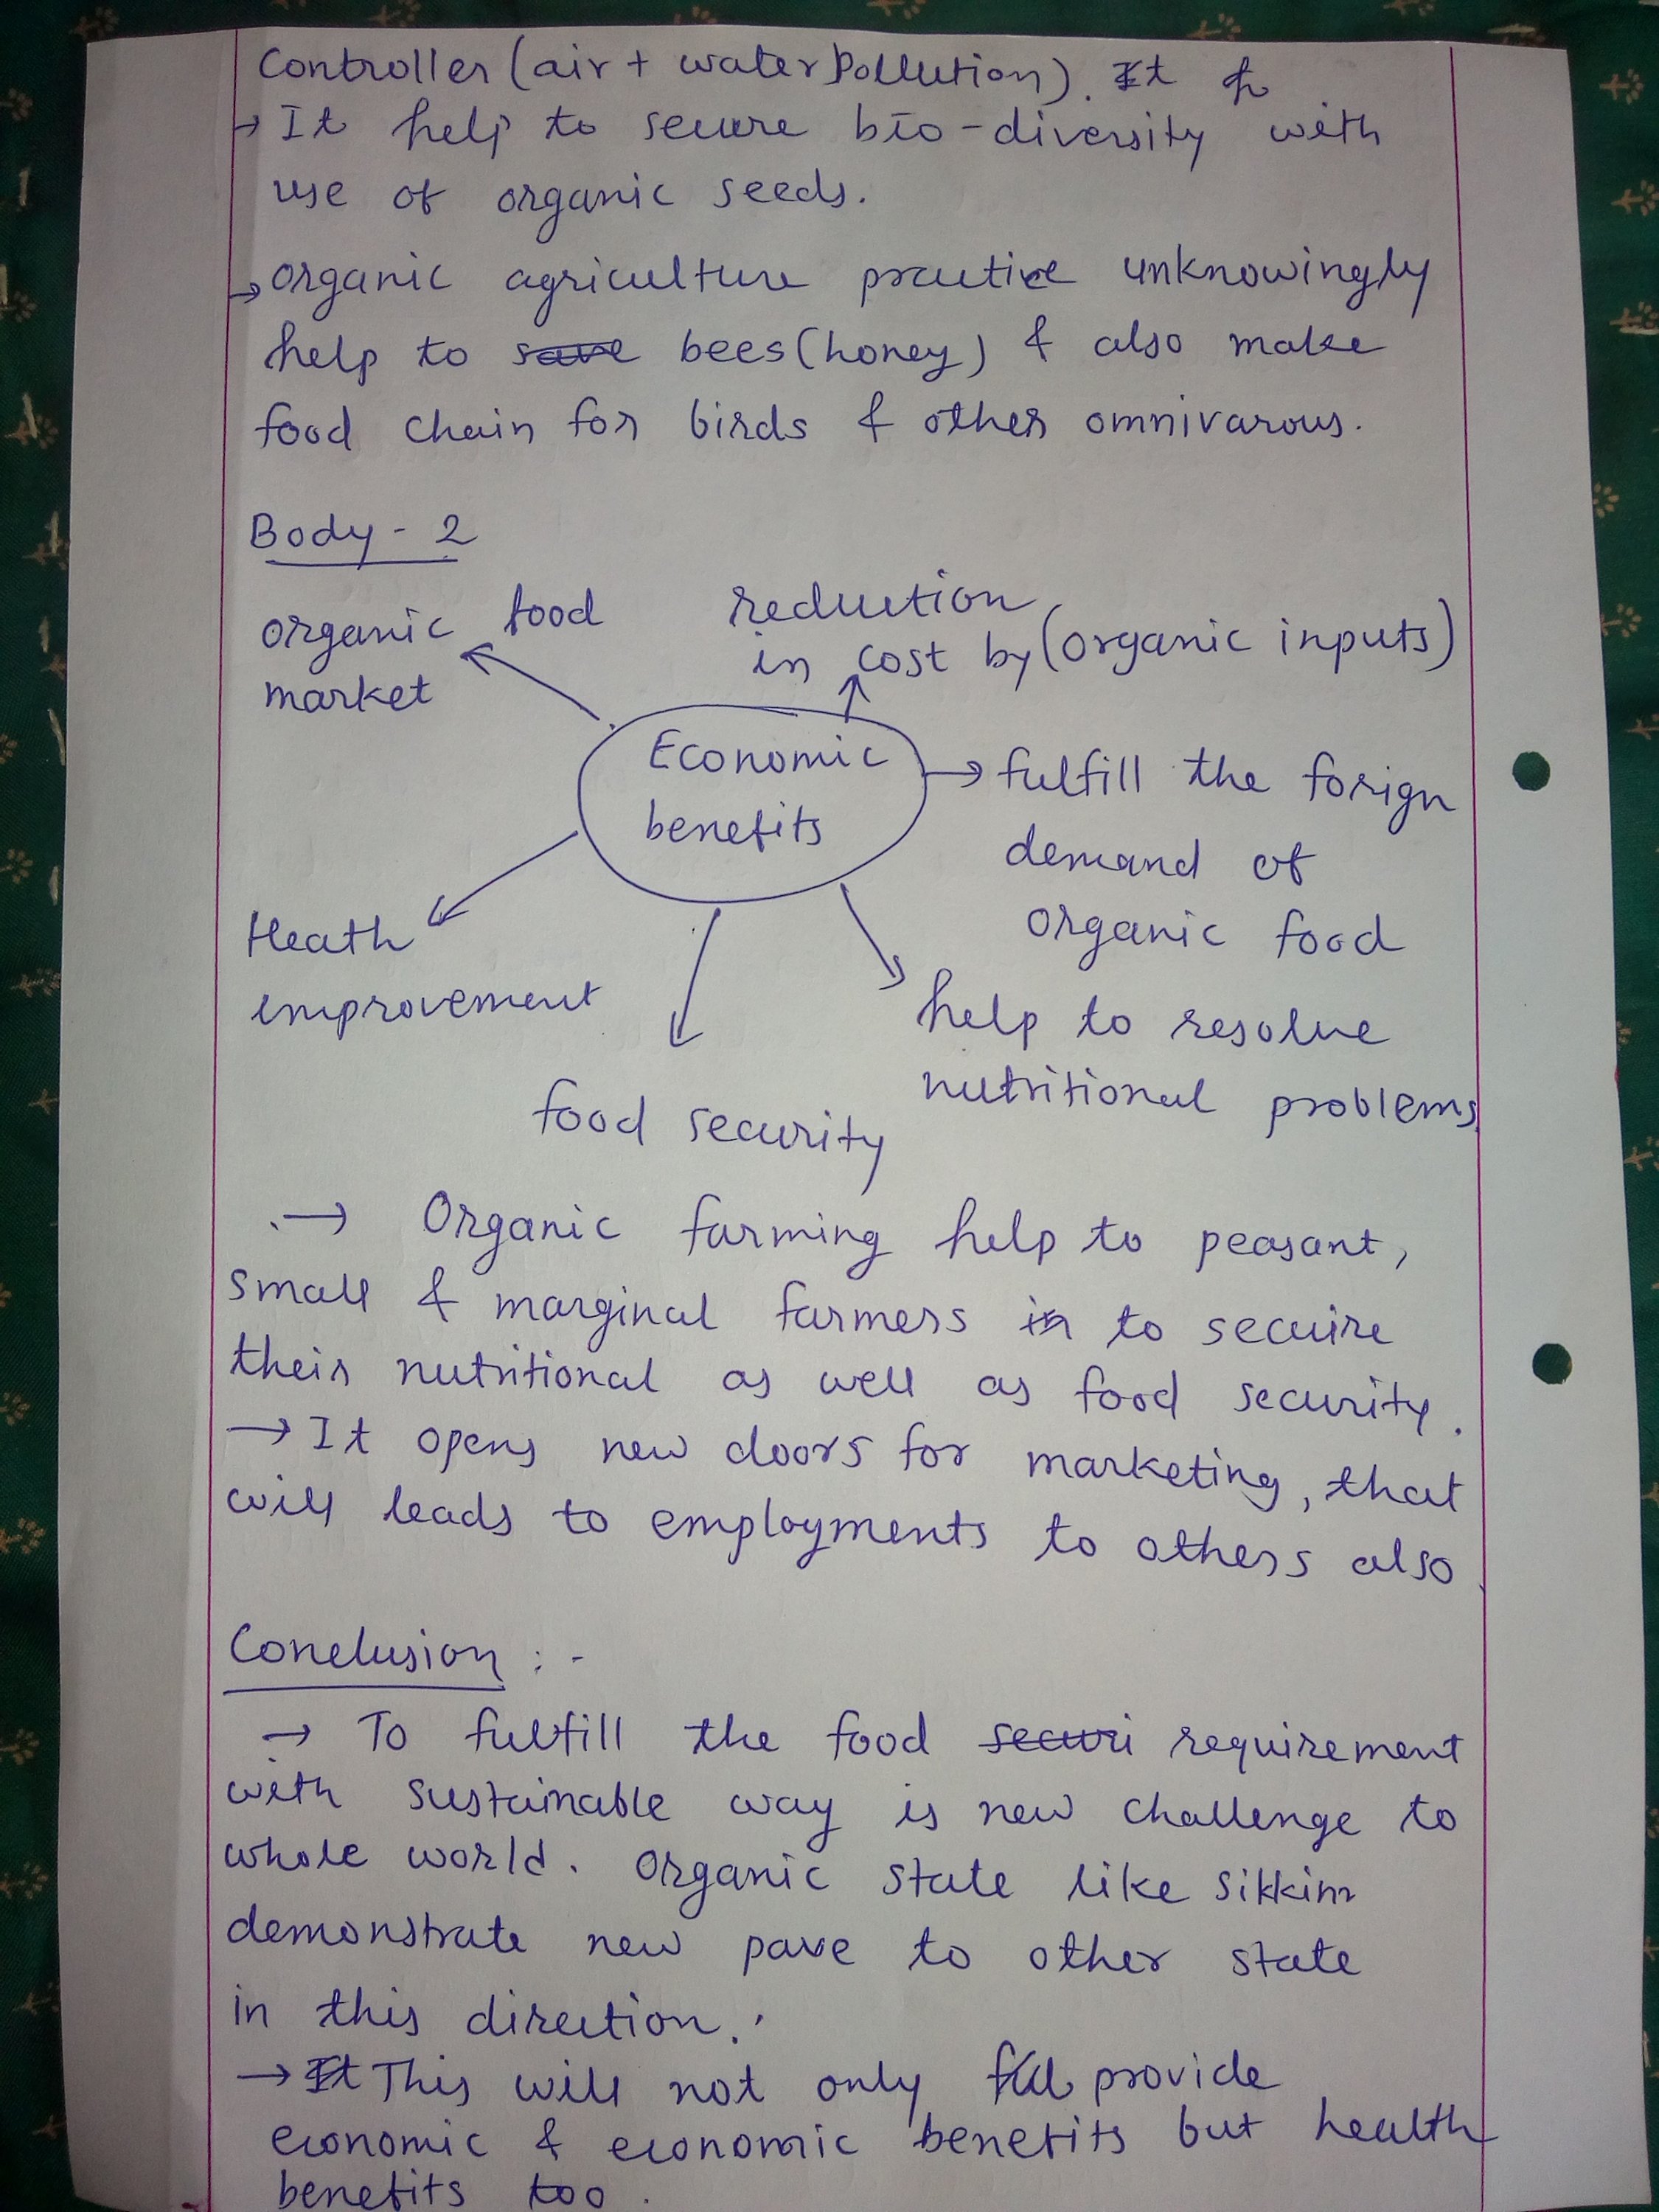 Controller (air + water pollution). It
→ It help to secure bio-diversity with
use of organic seeds.
→ organic agriculture practice unknowingly
help to save bees (honey) & also make
food chain for birds & other omnivarous.
Body - 2
organic food
market
reduction
in cost by (organic inputs)
Economic
benefits
→ fulfill the forign
demand of
organic food
Heath
improvement
help to resolve
nutritional problems
food security
→ Organic farming help to peasant,
small & marginal farmers in to secure
their nutritional as well as food security.
→ It opens new doors for marketing, that
will leads to employments to others also.
Conclusion :-
→ To fulfill the food securi requirement
with sustainable way is new challenge to
whole world. organic state like Sikkim
demonstrate new pave to other state
in this direction.
→ It This will not only provide
economic & economic benefits but health
benefits too.